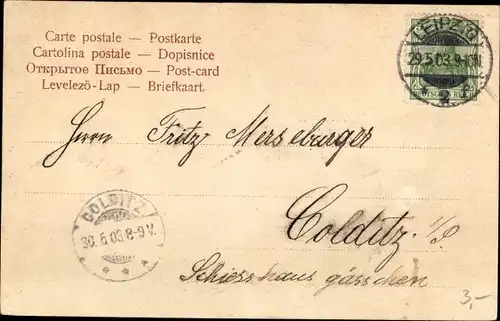 Carte postale — Postkarte
Cartolina postale — Dopisnice
Открытое Письмо — Post-card
Levelező-Lap — Briefkaart.
LEIPZIG
29.5.03.9-10N.
2
Herrn Fritz Merseburger
COLDITZ
30.5.03.8-9V.
Colditz i/S
Schiesshausgässchen
3,-